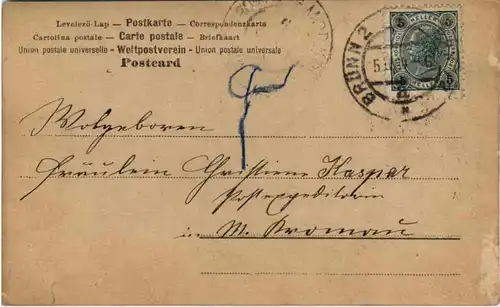 Levelező-Lap — Postkarte — Correspondenzkarte
Cartolina postale — Carte postale — Briefkaart
Union postale universelle - Weltpostverein - Union postale universale
Postcard
BRÜNN 2
5 HELLER 5
Wolgeboren
Fräulein Christiene Kasper
Postexpeditorin
in M. Kromau